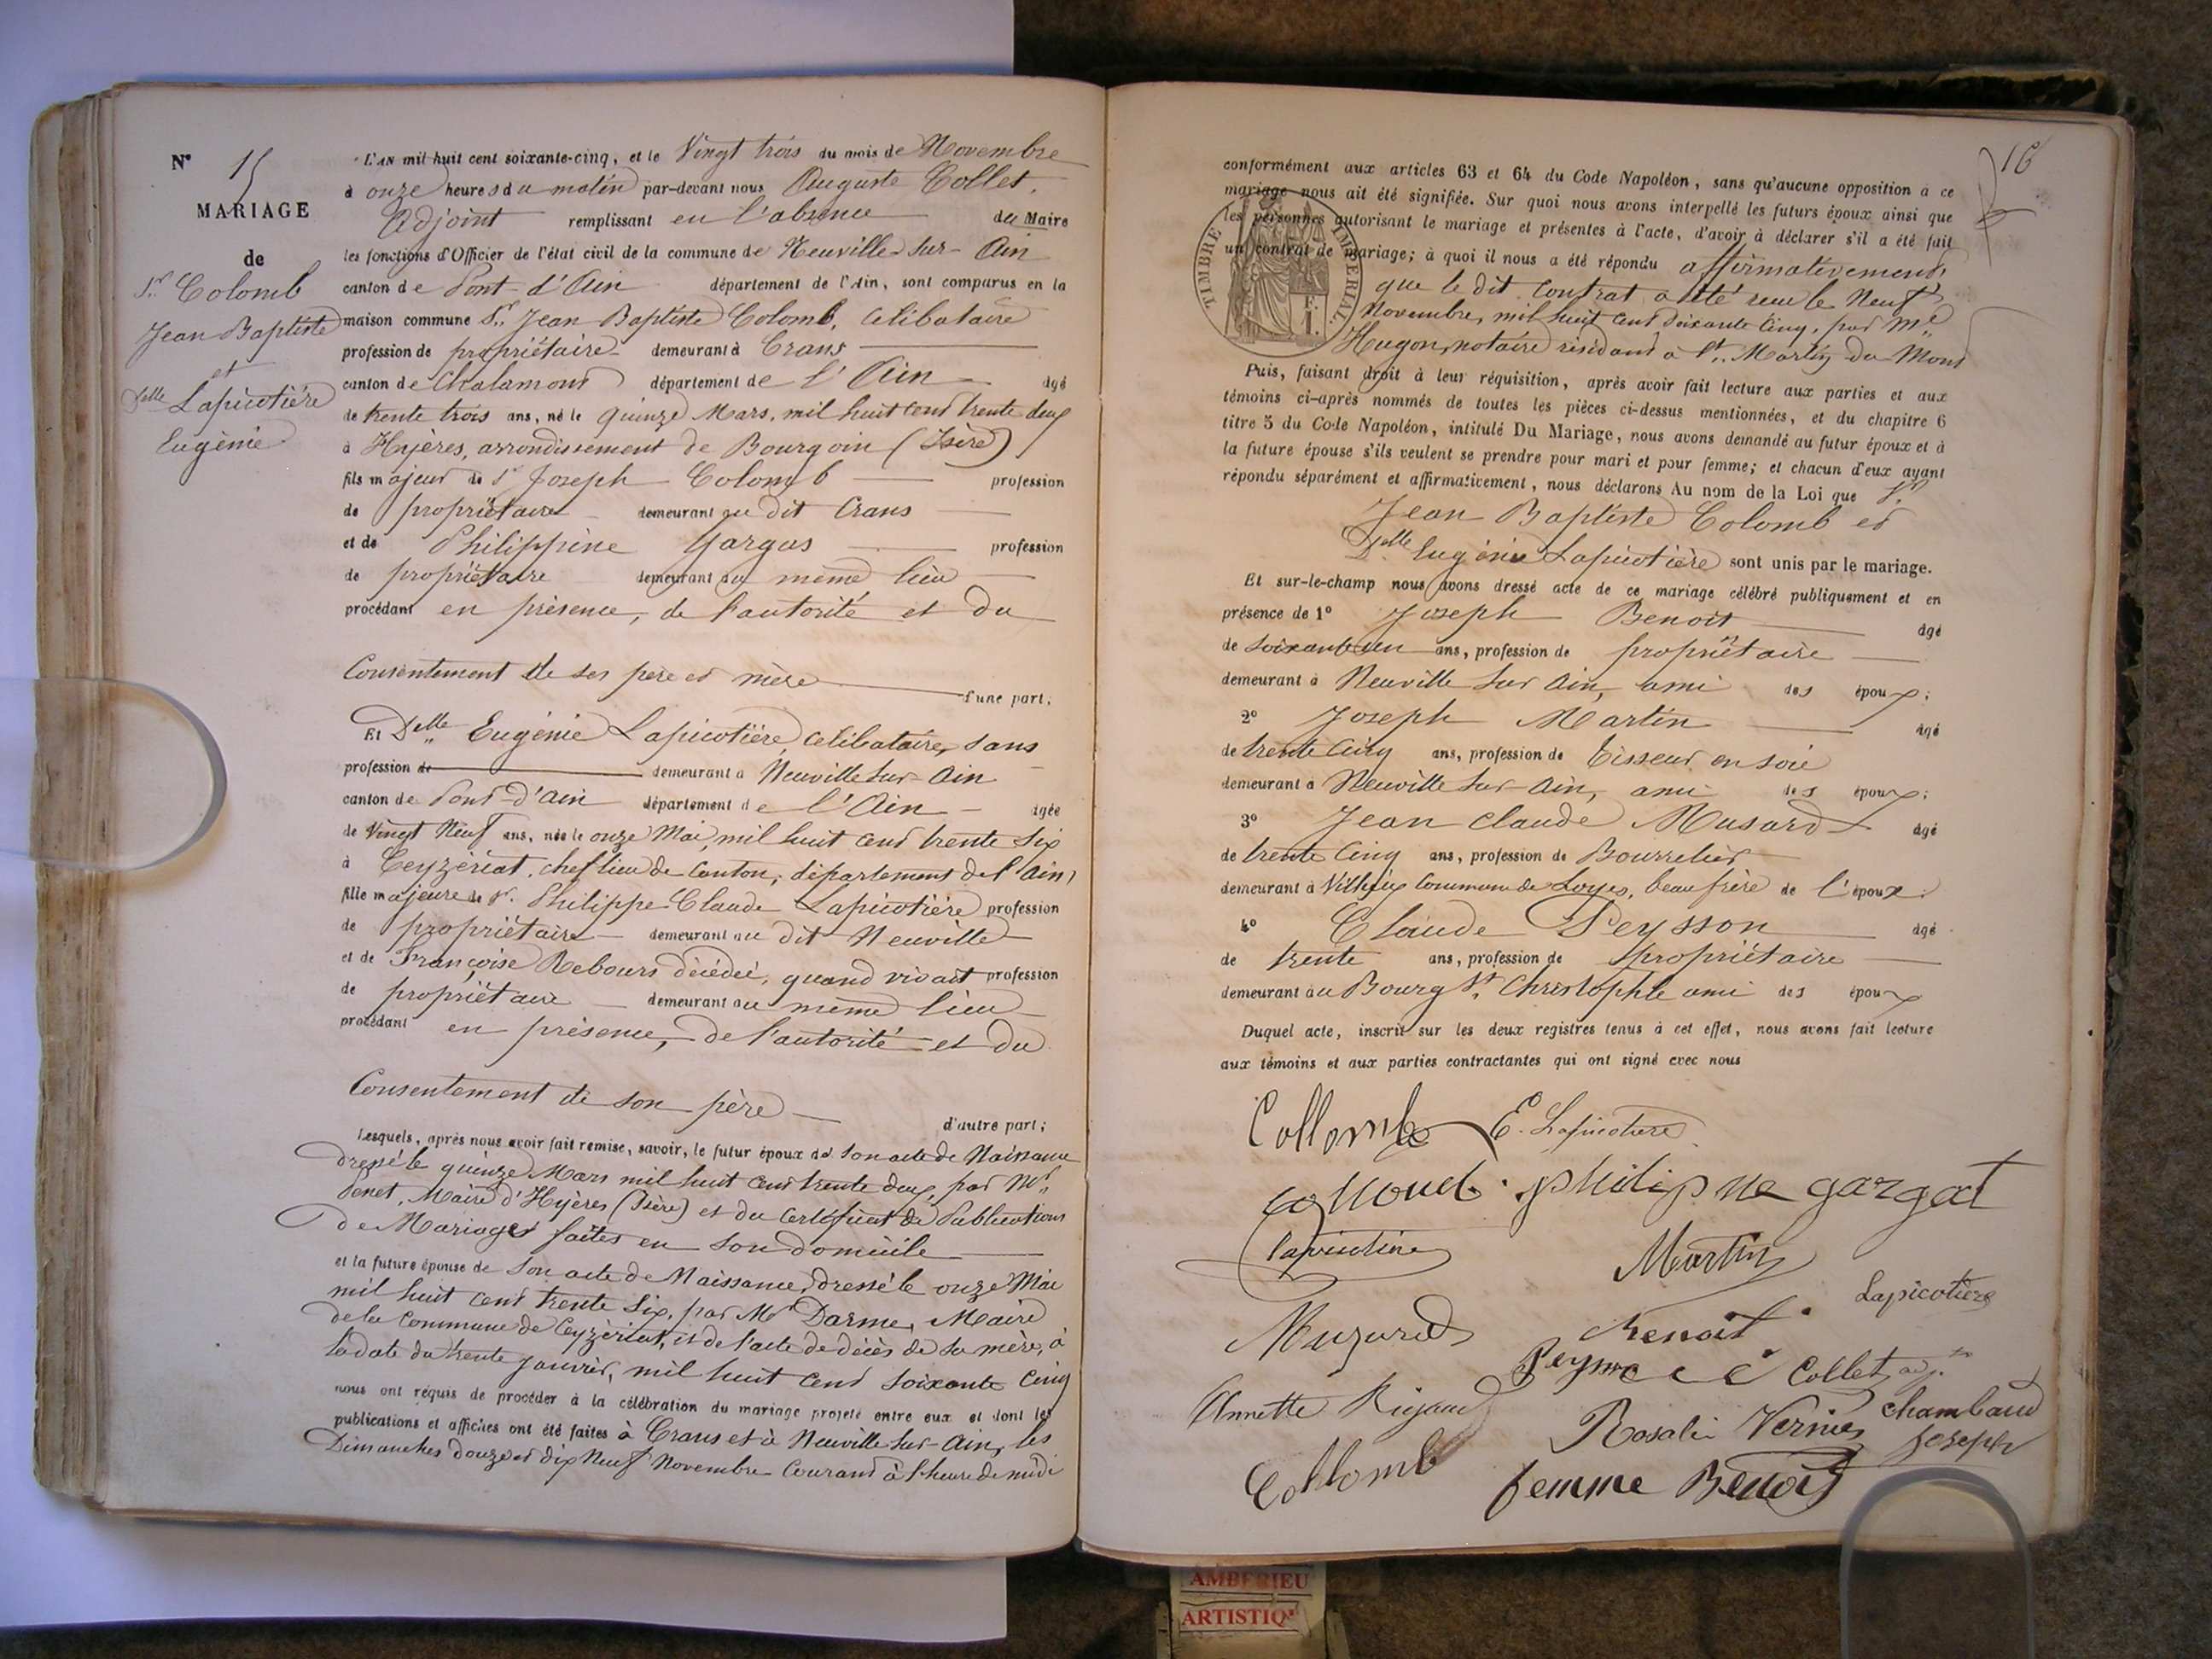 N° 15
MARIAGE
de
Sr. Colomb
Jean Baptiste
et
Delle Lapicotière
Eugénie
L'AN mil huit cent soixante-cinq, et le Vingt trois du mois de Novembre
à onze heures du matin par-devant nous Auguste Collet,
Adjoint remplissant en l'absence du Maire
les fonctions d'Officier de l'état civil de la commune de Neuville sur-Ain
canton de Pont-d'Ain département de l'Ain, sont comparus en la
maison commune Sr. Jean Baptiste Colomb, célibataire
profession de propriétaire demeurant à Crans
canton de Chalamont département de l'Ain âgé
de trente trois ans, né le quinze Mars, mil huit cent trente deux
à Hyères, arrondissement de Bourgoin (Isère)
fils majeur de Sr Joseph Colomb profession
de propriétaire demeurant au dit Crans
et de Philippine Gargas profession
de propriétaire demeurant au même lieu
procédant en présence, de l'autorité et du
Consentement de ses père et mère d'une part;
Et Delle Eugénie Lapicotière, célibataire, sans
profession de demeurant à Neuville sur-Ain
canton de Pont-d'Ain département de l'Ain âgée
de Vingt Neuf ans, née le onze Mai, mil huit cent trente six
à Ceyzériat, chef lieu de Canton, département de l'Ain,
fille majeure de Sr. Philippe Claude Lapicotière profession
de propriétaire demeurant au dit Neuville
et de Françoise Rebours décédée, quand vivait profession
de propriétaire demeurant au même lieu
procédant en présence, de l'autorité et du
Consentement de son père d'autre part;
Lesquels, après nous avoir fait remise, savoir, le futur époux de son acte de Naissance
dressé le quinze Mars mil huit cent trente deux, par Mr.
Penet, Maire d'Hyères (Isère) et du Certificat de Publications
de Mariages faites en son domicile
et la future épouse de son acte de Naissance, dressé le onze Mai
mil huit cent trente six, par Mr Darme, Maire
de la Commune de Ceyzériat, et de l'acte de décès de sa mère, à
la date du trente janvier, mil huit cent soixante cinq
nous ont requis de procéder à la célébration du mariage projeté entre eux et dont les
publications et affiches ont été faites à Crans et à Neuville sur-Ain, les
Dimanches douze et dix Neuf Novembre Courant à l'heure de midi
16
TIMBRE IMPERIAL
F. 1.
conformément aux articles 63 et 64 du Code Napoléon, sans qu'aucune opposition a ce
mariage nous ait été signifiée. Sur quoi nous avons interpellé les futurs époux ainsi que
les personnes autorisant le mariage et présentes à l'acte, d'avoir à déclarer s'il a été fait
un contrat de mariage; à quoi il nous a été répondu affirmativement,
que le dit contrat a été reçu le Neuf
Novembre, mil huit cent soixante Cinq, par Me
Hugon, notaire résidant à St. Martin du Mont
Puis, faisant droit à leur réquisition, après avoir fait lecture aux parties et aux
témoins ci-après nommés de toutes les pièces ci-dessus mentionnées, et du chapitre 6
titre 5 du Code Napoléon, intitulé Du Mariage, nous avons demandé au futur époux et à
la future épouse s'ils veulent se prendre pour mari et pour femme; et chacun d'eux ayant
répondu séparément et affirmativement, nous déclarons Au nom de la Loi que Sr.
Jean Baptiste Colomb et
Delle Eugénie Lapicotière sont unis par le mariage.
Et sur-le-champ nous avons dressé acte de ce mariage célébré publiquement et en
présence de 1° Joseph Benoit âgé
de soixante un ans, profession de propriétaire
demeurant à Neuville sur Ain, ami des époux;
2° Joseph Martin âgé
de trente cinq ans, profession de Tisseur en soie
demeurant à Neuville sur-Ain, ami des époux;
3° Jean Claude Musard âgé
de trente Cinq ans, profession de Bourrelier
demeurant à Villieux Commune de Loyes, beau frère de l'époux.
4° Claude Peysson âgé
de trente ans, profession de propriétaire
demeurant au Bourg St. Christophle ami des époux
Duquel acte, inscrit sur les deux registres tenus à cet effet, nous avons fait lecture
aux témoins et aux parties contractantes qui ont signé avec nous
Collomb E. Lapicotiere
philipne gargat
Lapicotiere Martin
Lapicotiere
Muzard Benoit
Peysson Collet, adjt.
Annette Rigaud Rosalie Vernies Chambaud
Joseph
Collomb femme Benoit
AMBERIEU
ARTISTIQ